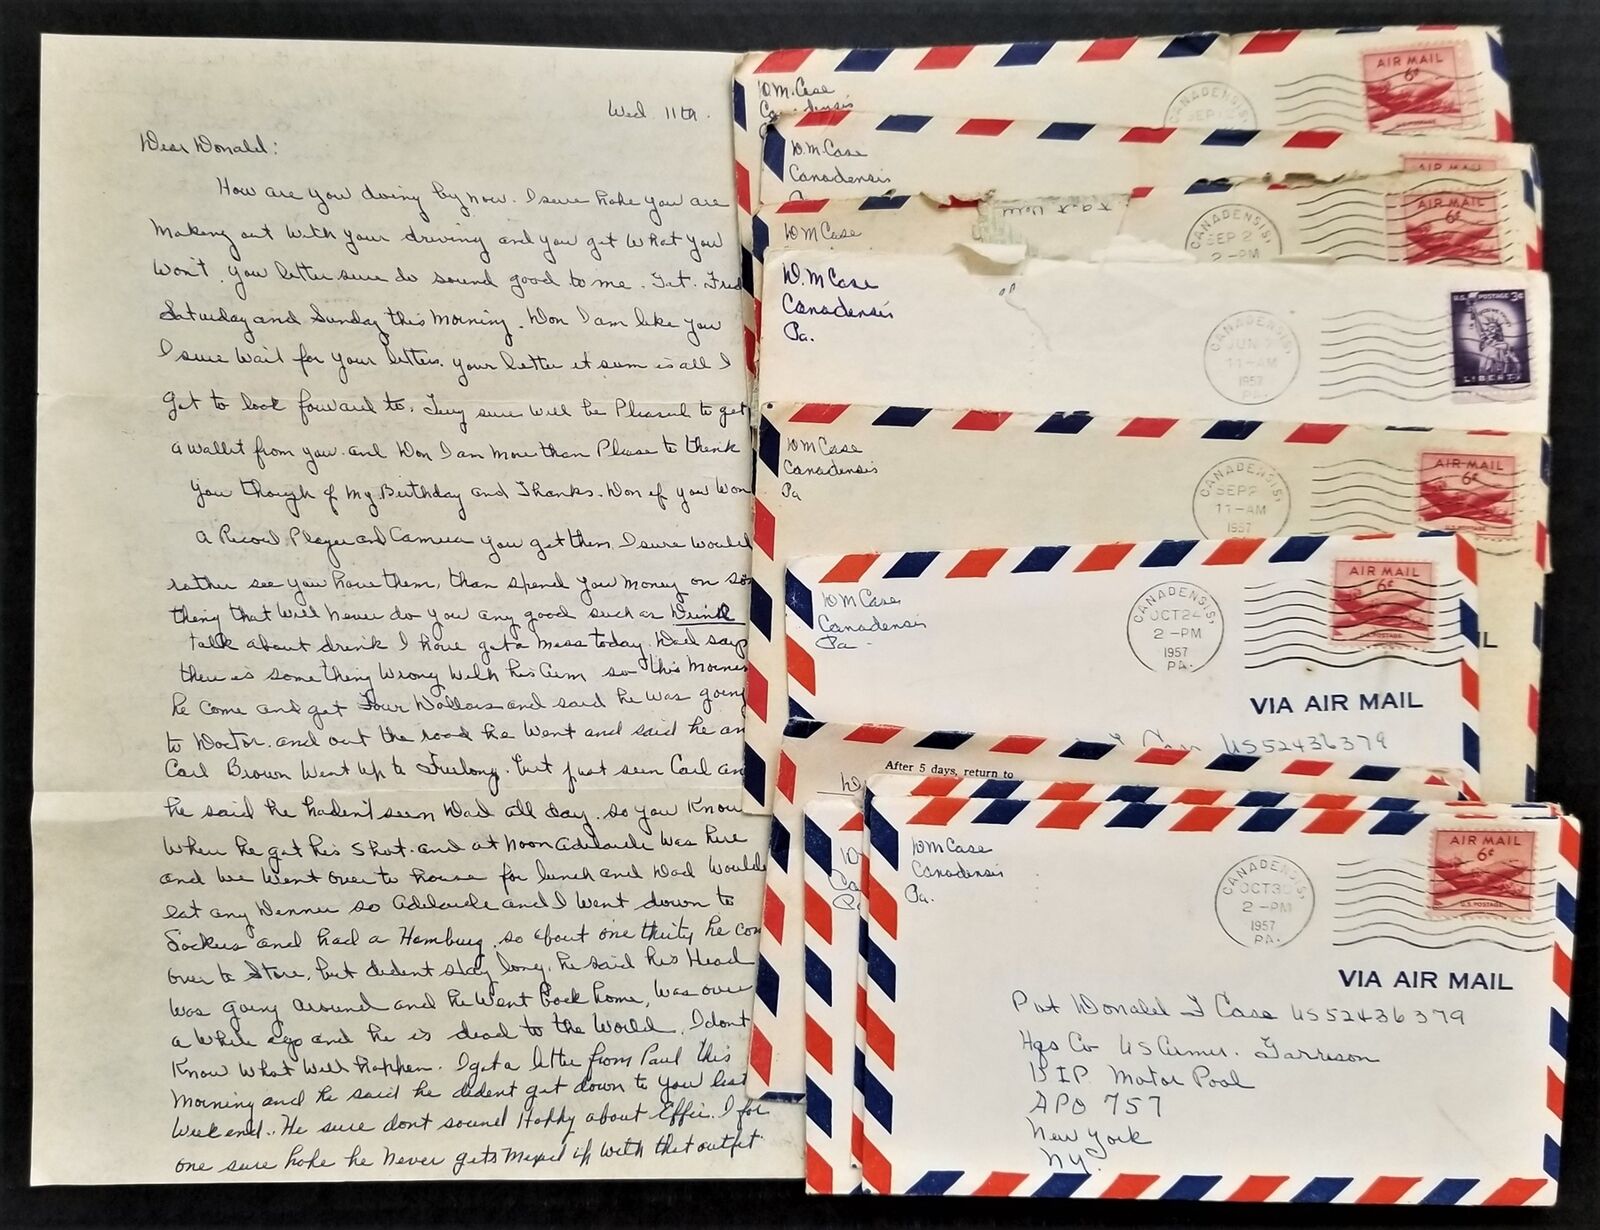 Wed. 11th.
Dear Donald:
How are you doing by now. I sure hope you are
Making out with your driving and you get what you
Won't. you letter sure do sound good to me. Got. Frid
Saturday and Sunday this Morning. Don I am like you
I sure wait for your letters. your letter it sum is all I
Get to look forward to. sure will be Pleased to get
a wallet from you. and Don I am more than Please to think
you though of My Birthday and Thanks. Don if you Won
a Record Player and Camera you get them. I sure would
rather see you have them, than spend you money on so
thing that will never do you any good such as Drink
talk about drink I have got a mess today. Dad say
there is something wrong with his arm so this Mornin
he come and get Four Dollars and said he was going
to Doctor. and out the road he went and said he an
Carl Brown went up to. but just seen Carl an
he said he hadent seen Dad all day. so you know
where he got his shot. and at noon Adelaide was here
and we went over to house for lunch and Dad would
eat any Denner so Adelaide and I went down to
and had a Hamburg. so about one thirty he com
over to Store, but dident stay long. he said his Head
was going around and he went back home, was over
a while ago and he is dead to the world. I dont
Know what will happen. I got a letter from Paul this
Morning and he said he dident get down to you last
Weekend. He sure dont sound Happy about Effie. I for
one sure hope he never gets mixed up with that outfit
D M. Case
Canadensis
CANADENSIS,
SEP
AIR MAIL
6¢
D M. Case
Canadensis
AIR MAIL
D M Case
CANADENSIS,
SEP 2
2-PM
AIR MAIL
6¢
D. M Case
Canadensis
Pa.
CANADENSIS,
JUN
11-AM
1957
PA.
U.S. POSTAGE 3¢
LIBERTY
D M Case
Canadensis
Pa
CANADENSIS,
SEP 2
11-AM
1957
AIR MAIL
6¢
U.S. POSTAGE
D M Case
Canadensis
Pa.
CANADENSIS,
OCT 24
2-PM
1957
PA.
AIR MAIL
6¢
U.S. POSTAGE
VIA AIR MAIL
US52436379
L
After 5 days, return to
D M Case
Canadensis
Pa.
CANADENSIS,
OCT 30
2-PM
1957
PA.
AIR MAIL
6¢
U.S. POSTAGE
VIA AIR MAIL
Pvt Donald F Case US52436379
Hqs Co US Army. Garrison
Motor Pool
APO 757
New York
NY.